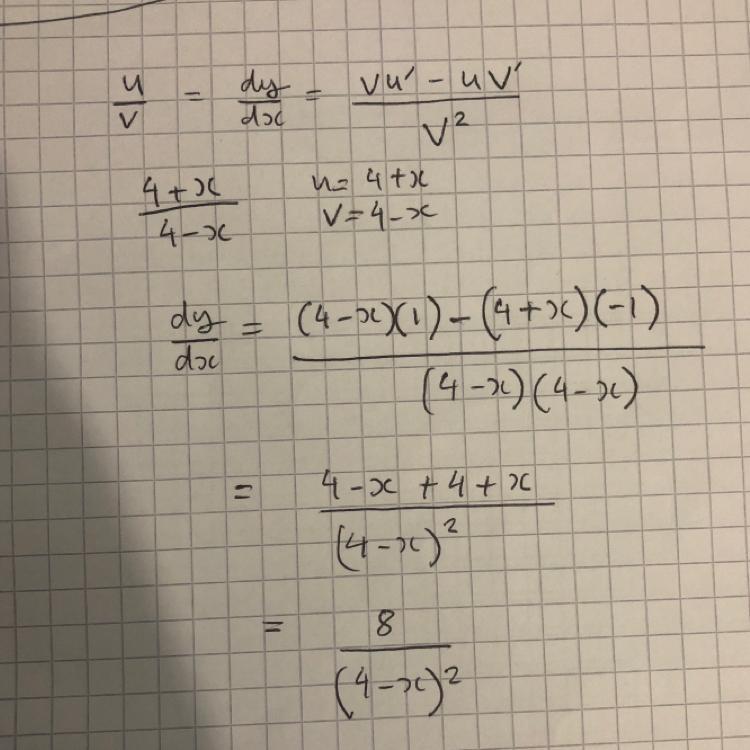 u/v = dy/dx = (vu' - uv')/v²
(4+x)/(4-x) u= 4+x
v=4-x
dy/dx = ((4-x)(1) - (4+x)(-1))/((4-x)(4-x))
= (4-x+4+x)/(4-x)²
= 8/(4-x)²